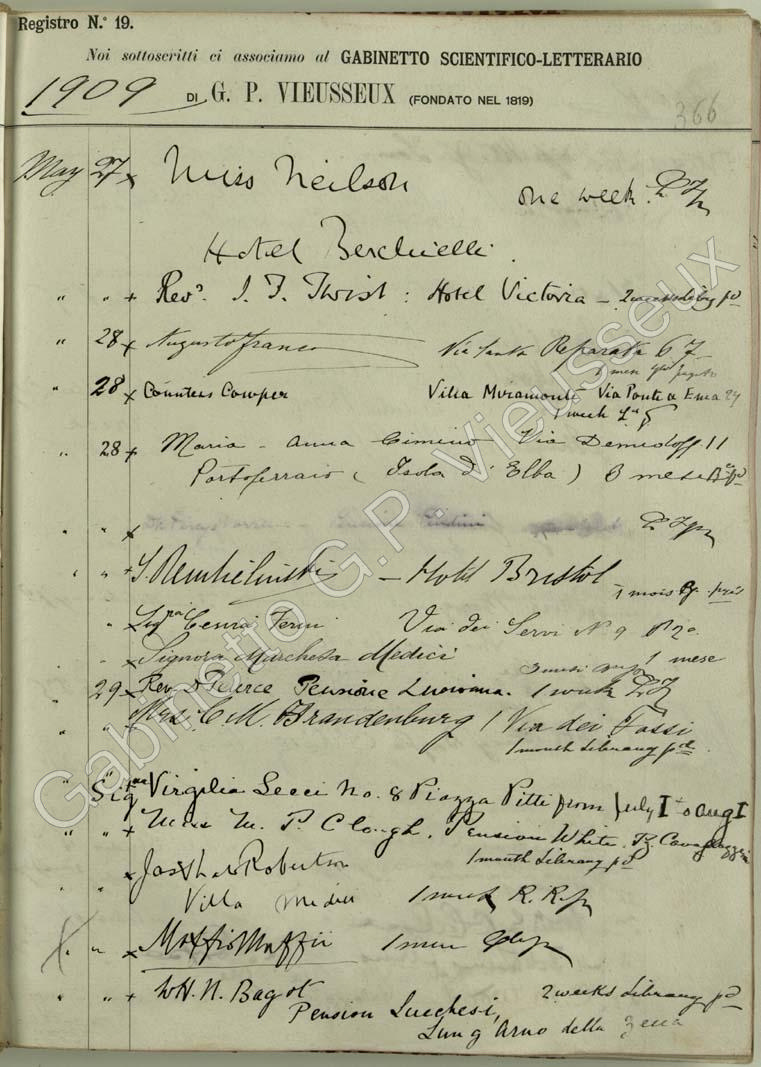 Registro N.º 19.
Noi sottoscritti ci associamo al GABINETTO SCIENTIFICO-LETTERARIO
1909 DI G. P. VIEUSSEUX (FONDATO NEL 1819)
366
May 27 x Miss Neilson one week.
Hotel Berchielli
" " + Revd. J. F. Twist : Hotel Victoria — 2 weeks Liby pd
" 28 x Augusto Franco Via Santa Reparata 67
1 mese
" 28 x Countess Cowper Villa Miramonte Via Ponte a Ema 29
1 week
" 28 x Maria - Anna Cimino Via Demidoff 11
Portoferraio (Isola d'Elba) 6 mesi
" " x
" " + — Hotel Bristol
1 mois
" x Sigra Via dei Servi N 9 P 2o
" x Signora Marchesa Medici
3 mesi 1 mese
29 x Rev Pierce Pensione 1 week
" " x Mrs C. M. Brandenburg 1 Via dei Fossi
1 month Library pd.
" " Sigrne Virgilia Lecci No. 8 Piazza Pitti from July I to Aug I
" " + Miss M. P. Clough. Pension White. P. Cavalleggeri
1 month Library pd
" " x Robertson
Villa Medici 1 week R. R.
x " " x Maffio Maffii 1 mese
" " + W H. N. Bagot 2 weeks Library pd
Pension Lucchesi,
Lung Arno della Zecca
Gabinetto G.P. Vieusseux